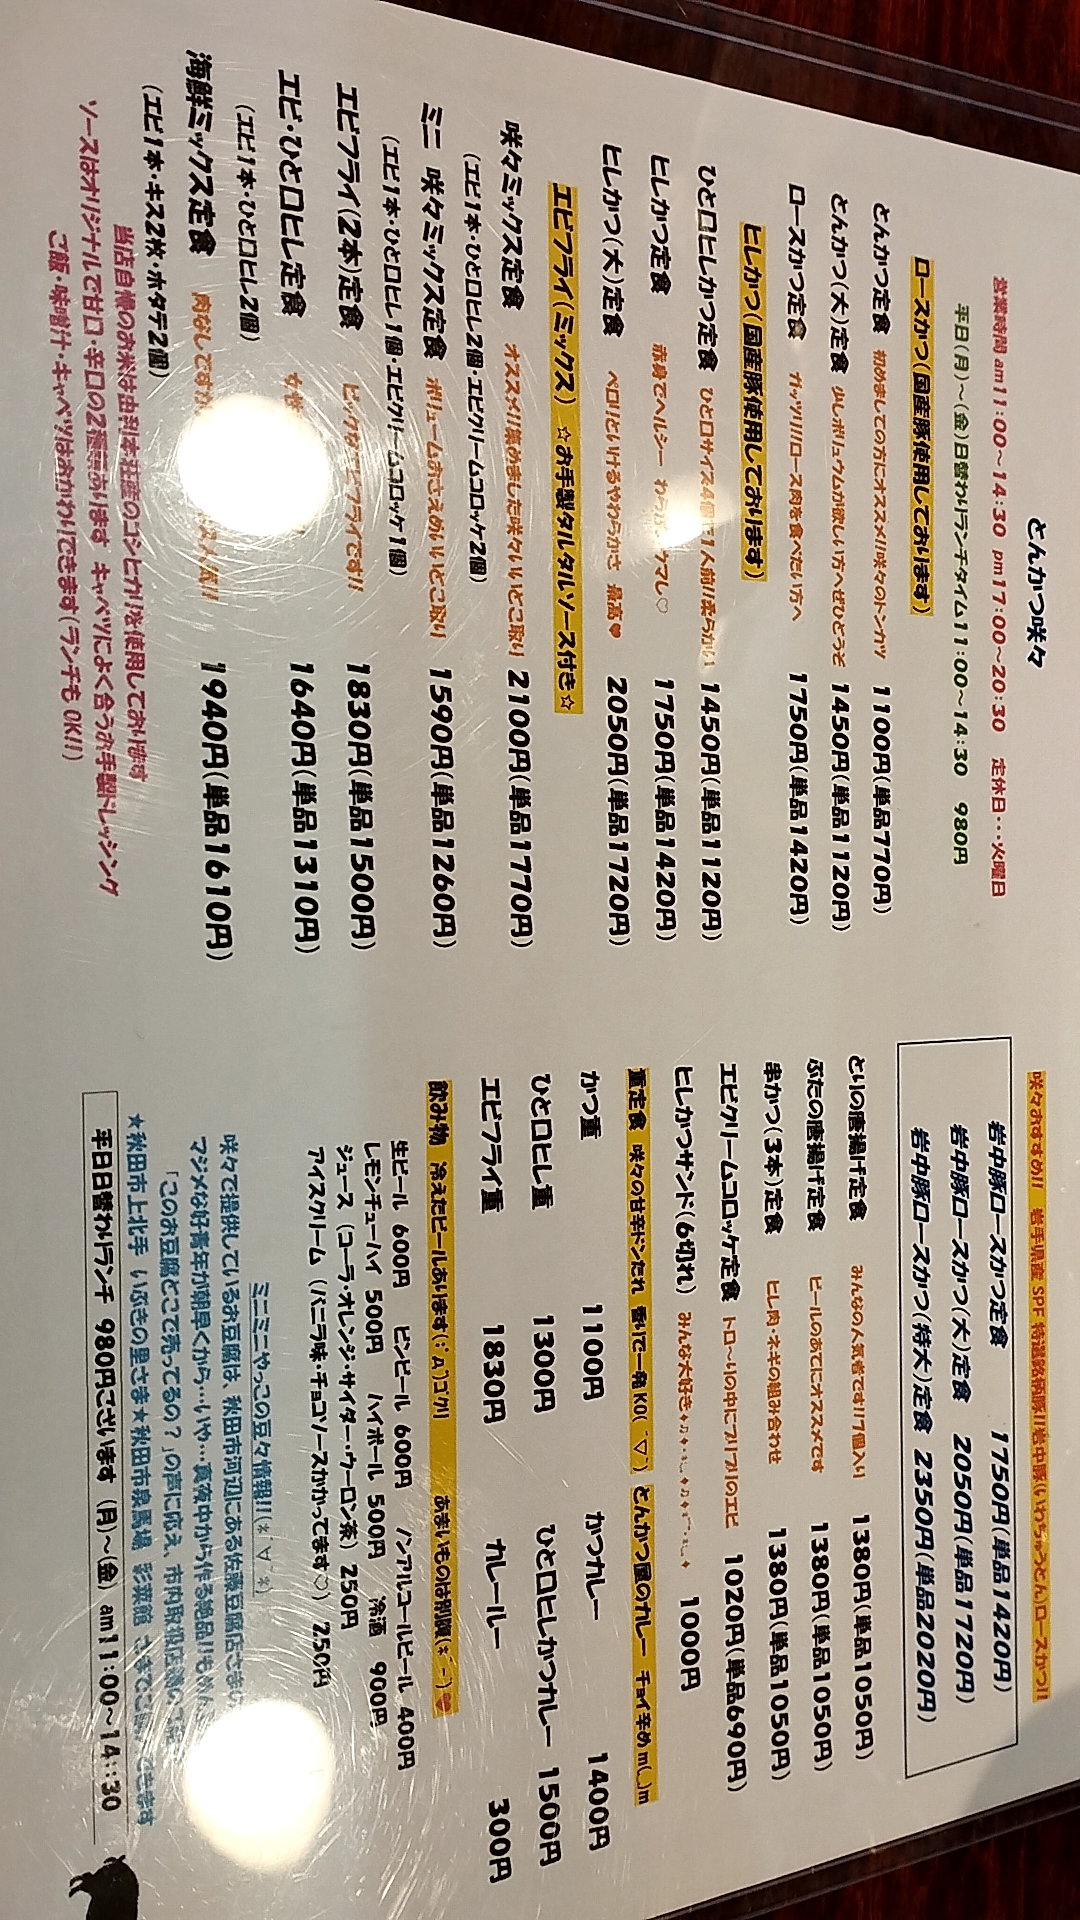 とんかつ咲々
営業時間 am11:00～14:30 pm17:00～20:30 定休日･･･火曜日
平日(月)～(金)日替わりランチタイム11:00～14:30 980円
ロースかつ(国産豚使用しております)
とんかつ定食 初めましての方にオススメ!!咲々のトンカツ 1100円(単品770円)
とんかつ(大)定食 少しボリュウムが欲しい方へぜひどうぞ 1450円(単品1120円)
ロースかつ定食 ガッツリ!!ロース肉を食べたい方へ 1750円(単品1420円)
ヒレかつ(国産豚使用しております)
ひと口ヒレかつ定食 ひと口サイズ4個で1人前!!柔らかい 1450円(単品1120円)
ヒレかつ定食 赤身でヘルシー 1750円(単品1420円)
ヒレかつ(大)定食 ペロリといけるやわらかさ 最高♥ 2050円(単品1720円)
エビフライ(ミックス) ☆お手製タルタルソース付き☆
咲々ミックス定食 オススメ!!集めました咲々いいとこ取り 2100円(単品1770円)
(エビ1本･ひと口ヒレ2個･エビクリームコロッケ2個)
ミニ 咲々ミックス定食 ボリュームおさえめいいとこ取り 1590円(単品1260円)
(エビ1本･ひと口ヒレ1個･エビクリームコロッケ1個)
エビフライ(2本)定食 ビックなエビフライです!! 1830円(単品1500円)
エビ･ひと口ヒレ定食 1640円(単品1310円)
(エビ1本･ひと口ヒレ2個)
海鮮ミックス定食 肉なしですが 1940円(単品1610円)
(エビ1本･キス2枚･ホタテ2個)
当店自慢のお米は由利本荘産のコシヒカリを使用しております
ソースはオリジナルで甘口･辛口の2種類あります キャベツによく合うお手製ドレッシング
ご飯･味噌汁･キャベツはおかわりできます(ランチも OK!!)
咲々おすすめ!! 岩手県産 SPF 特選銘柄豚!!岩中豚(いわちゅうとん)ロースかつ!!
岩中豚ロースかつ定食 1750円(単品1420円)
岩中豚ロースかつ(大)定食 2050円(単品1720円)
岩中豚ロースかつ(特大)定食 2350円(単品2020円)
とりの唐揚げ定食 みんなの人気者です!!7個入り 1380円(単品1050円)
ぶたの唐揚げ定食 ビールのあてにオススメです 1380円(単品1050円)
串かつ(3本)定食 ヒレ肉･ネギの組み合わせ 1380円(単品1050円)
エビクリームコロッケ定食 トロ～りの中にプリプリのエビ 1020円(単品690円)
ヒレかつサンド(6切れ) みんな大好き 1000円
重定食 咲々の甘辛ドンたれ 香りで一発 KO(´▽`) とんかつ屋のカレー チョイ辛め m(_)m
かつ重 1100円 かつカレー 1400円
ひと口ヒレ重 1300円 ひと口ヒレかつカレー 1500円
エビフライ重 1830円 カレールー 300円
飲み物 冷えたビールあります(;ﾟДﾟ)ｺﾞｸﾘ あまいものは別腹(*´-)♥
生ビール 600円 ビンビール 600円 ノンアルコールビール 400円
レモンチューハイ 500円 ハイボール 500円 冷酒 900円
ジュース (コーラ･オレンジ･サイダー･ウーロン茶) 250円
アイスクリーム (バニラ味･チョコソースかかってます♡) 250円
ミニミニやっこの豆々情報!!(*´∀`*)
咲々で提供しているお豆腐は、秋田市河辺にある佐藤豆腐店さま
マジメな好青年が朝早くから･･･いや･･･真夜中から作る絶品!!
「このお豆腐どこで売ってるの?」の声に応え、市内取扱店
★秋田市上北手 いぶきの里さま★秋田市泉馬場 彩菜館 さまで
平日日替わりランチ 980円ございます (月)～(金) am11:00～14:30